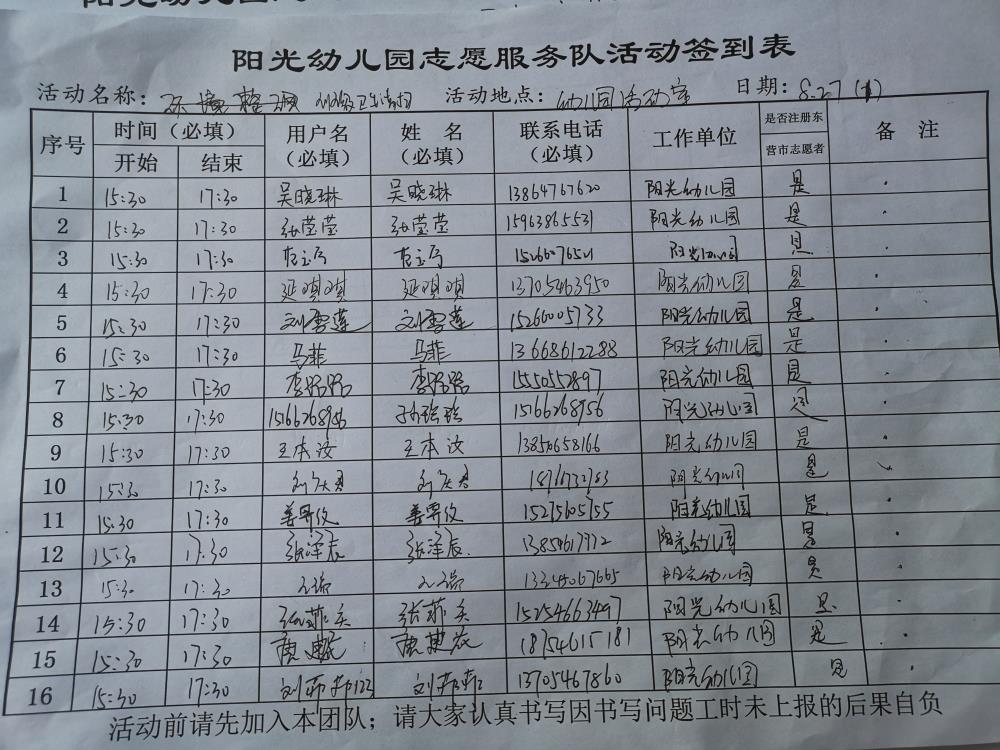 阳光幼儿园志愿服务队活动签到表
活动名称: 环境整理 卫生清扫 活动地点: 幼儿园活动室 日期: 8.27
序号 时间（必填） 用户名（必填） 姓 名（必填） 联系电话（必填） 工作单位 是否注册东营市志愿者 备 注
开始 结束
1 15:30 17:30 吴晓琳 吴晓琳 13864767620 阳光幼儿园 是
2 15:30 17:30 张莹莹 张莹莹 15963865531 阳光幼儿园 是
3 15:30 17:30 15266076521 阳光幼儿园 是
4 15:30 17:30 延唄唄 延唄唄 13705463950 阳光幼儿园 是
5 15:30 17:30 刘雪莲 刘雪莲 15266005733 阳光幼儿园 是
6 15:30 17:30 马菲 马菲 13668612288 阳光幼儿园 是
7 15:30 17:30 李路路 李路路 15550552897 阳光幼儿园 是
8 15:30 17:30 15166268956 孙瑞瑞 15166268956 阳光幼儿园 是
9 15:30 17:30 王本汶 王本汶 13850658166 阳光幼儿园 是
10 15:30 17:30 18766732783 阳光幼儿园 是
11 15:30 17:30 姜界俊 姜界俊 15275605755 阳光幼儿园 是
12 15:30 17:30 张泽辰 张泽辰 13850617972 阳光幼儿园 是
13 15:30 17:30 13345067665 阳光幼儿园 是
14 15:30 17:30 张菲关 张菲关 15254663497 阳光幼儿园 是
15 15:30 17:30 唐 唐 18754615181 阳光幼儿园 是
16 15:30 17:30 刘邦邦123 刘邦邦 13705467860 阳光幼儿园 是
活动前请先加入本团队；请大家认真书写因书写问题工时未上报的后果自负